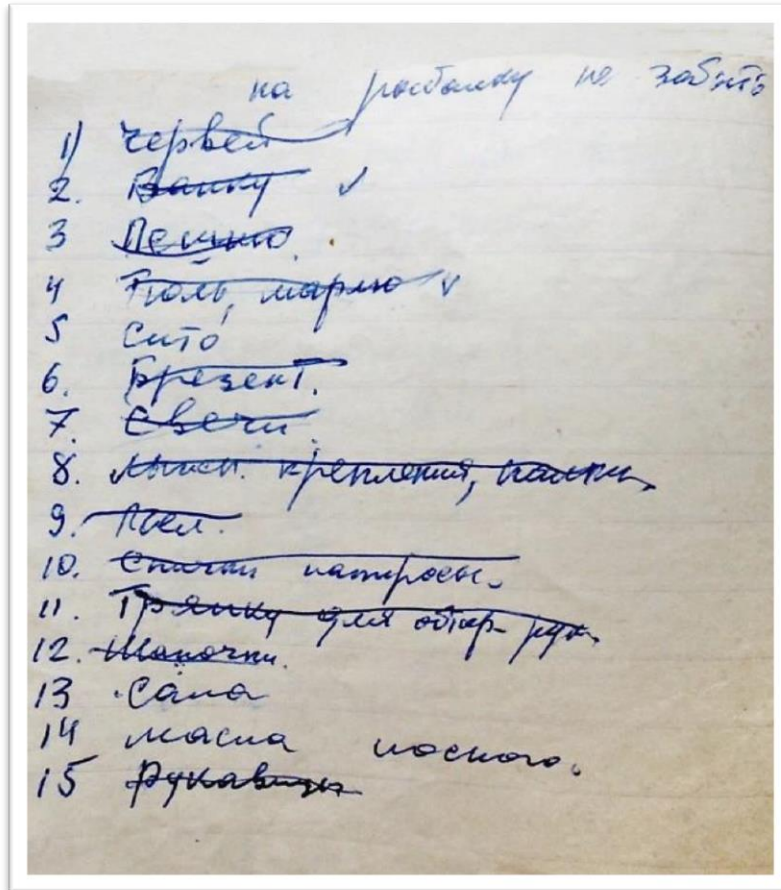 на рыбалку не забыть
1) червей
2. Банку ✓
3 Пешню.
4 Тюль, марлю ✓
5 Сито
6. Брезент.
7. Свечи.
8. лыжи. крепления, палки.
9. Мел.
10. Спички папиросы.
11. Тряпку для обтир. рук.
12. Шапочки.
13 Сала
14 масла посного.
15 Рукавицы